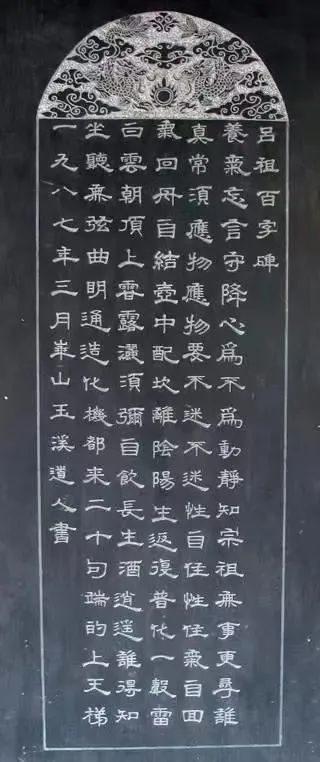 呂祖百字碑
養氣忘言守降心爲不爲動靜知宗祖無事更尋誰
真常須應物應物要不迷不迷性自住性住氣自回
氣回丹自結壺中配坎離陰陽生返復普化一聲雷
白雲朝頂上甘露灑須彌自飲長生酒逍遙誰得知
坐聽無弦曲明通造化機都來二十句端的上天梯
一九八七年三月華山玉溪道人書